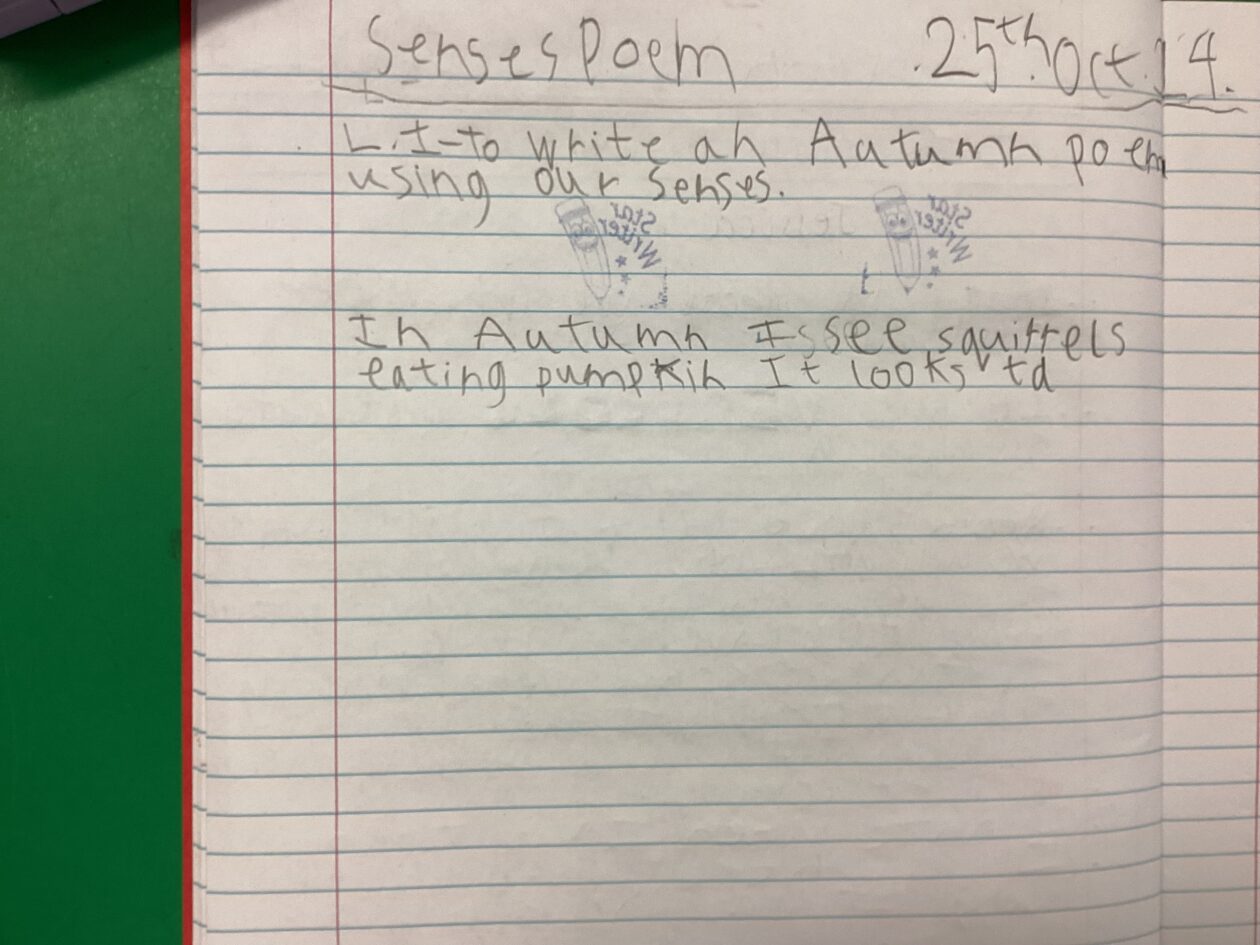 Senses Poem 25th Oct.14.
L.I-to write an Autumn poem
using our senses.
Star Writer Star Writer
In Autumn I see squirrels
eating pumpkin It looks